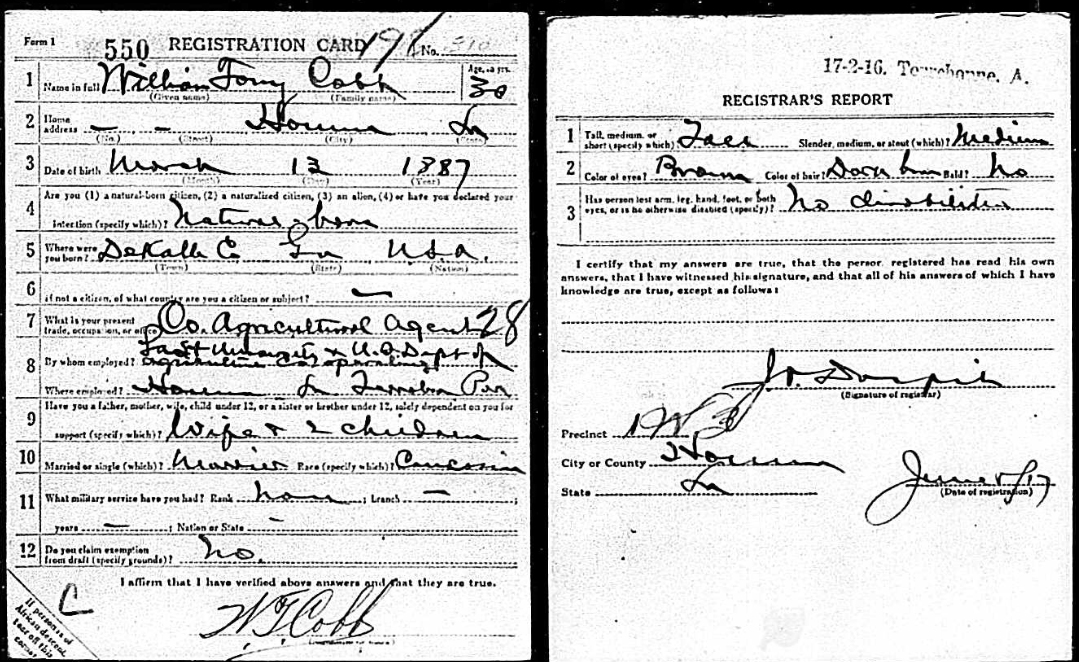 Form 1 550 REGISTRATION CARD 191 No.
1 Name in full William Tony Cobb Age, in yrs. 30
(Given name) (Family name)
2 Home address — — Houma La
(No.) (Street) (City) (State)
3 Date of birth March 13 1887
(Month) (Day) (Year)
Are you (1) a natural-born citizen, (2) a naturalized citizen, (3) an alien, (4) or have you declared your
4 intention (specify which)? Natural born
5 Where were you born? DeKalb C Ga U.S.A.
(Town) (State) (Nation)
6 If not a citizen, of what country are you a citizen or subject? —
7 What is your present trade, occupation, or office? Co. Agricultural Agent 28
8 By whom employed? University & U.S. Dept of Agriculture Co operating
Where employed? Houma La
9 Have you a father, mother, wife, child under 12, or a sister or brother under 12, solely dependent on you for
support (specify which)? Wife & 2 children
10 Married or single (which)? Married Race (specify which)? Caucasian
11 What military service have you had? Rank none ; branch — ;
years — ; Nation or State —
12 Do you claim exemption from draft (specify grounds)? No
I affirm that I have verified above answers and that they are true.
W T Cobb
If person is of African descent, tear off this corner
C
17-2-16. Terrebonne, A.
REGISTRAR'S REPORT
1 Tall, medium, or short (specify which)? Tall Slender, medium, or stout (which)? Medium
2 Color of eyes? Brown Color of hair? Dark brn Bald? No
3 Has person lost arm, leg, hand, foot, or both eyes, or is he otherwise disabled (specify)? No disabilities
I certify that my answers are true, that the person registered has read his own
answers, that I have witnessed his signature, and that all of his answers of which I have
knowledge are true, except as follows:
(Signature of registrar)
Precinct
City or County Houma
State La
June 5/17
(Date of registration)